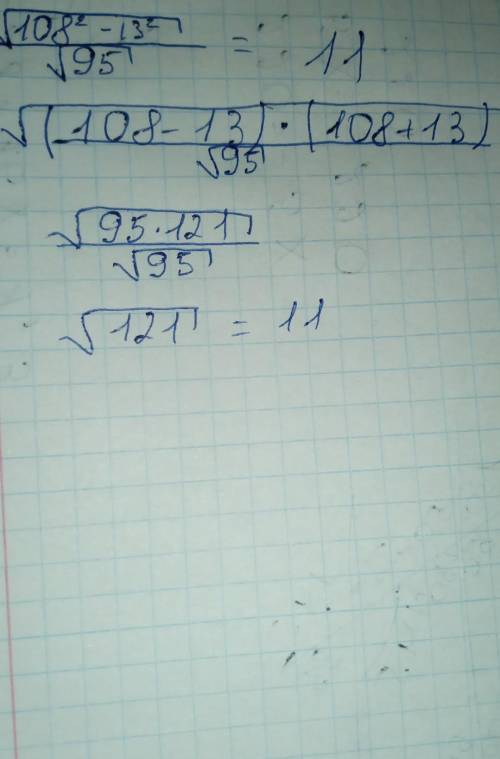 √(108² - 13²) / √95 = 11
√((108 - 13) · (108 + 13)) / √95
√(95 · 121) / √95
√121 = 11